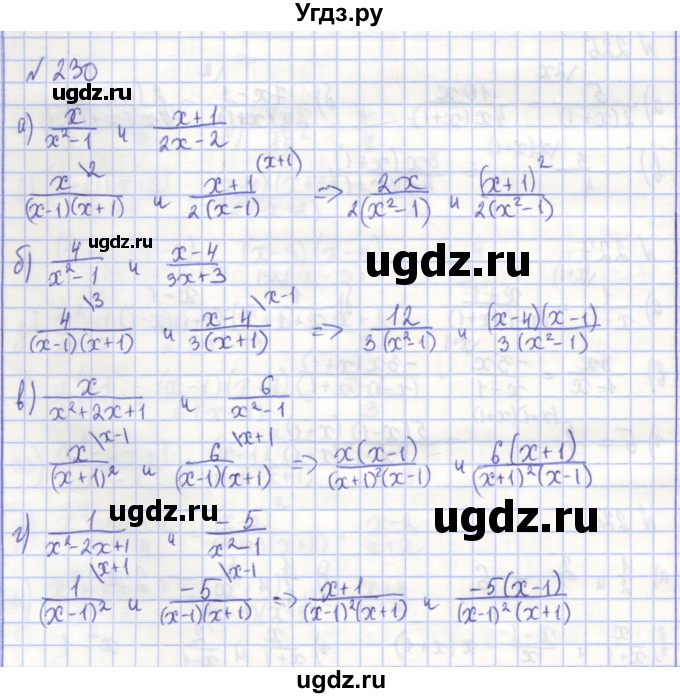 Угдз.ру
N 230
ugdz.ru
а) x/(x²-1) и (x+1)/(2x-2)
x\2/((x-1)(x+1)) и (x+1)\(x+1)/(2(x-1)) => 2x/(2(x²-1)) и (x+1)²/(2(x²-1))
ugdz.ru
ugdz.ru
б) 4/(x²-1) и (x-4)/(3x+3)
4\3/((x-1)(x+1)) и (x-4)\x-1/(3(x+1)) => 12/(3(x²-1)) и (x-4)(x-1)/(3(x²-1))
в) x/(x²+2x+1) и 6/(x²-1)
x\x-1/(x+1)² и 6\x+1/((x-1)(x+1)) => x(x-1)/((x+1)²(x-1)) и 6(x+1)/((x+1)²(x-1))
ugdz.ru
ugdz.ru
г) 1/(x²-2x+1) и -5/(x²-1)
1\x+1/(x-1)² и -5\x-1/((x-1)(x+1)) => (x+1)/((x-1)²(x+1)) и -5(x-1)/((x-1)²(x+1))
ugdz.ru